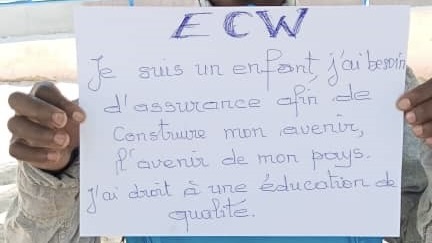 ECW
Je suis un enfant, j'ai besoin
d'assurance afin de
Construire mon avenir,
l'avenir de mon pays.
J'ai droit à une éducation de
qualité.